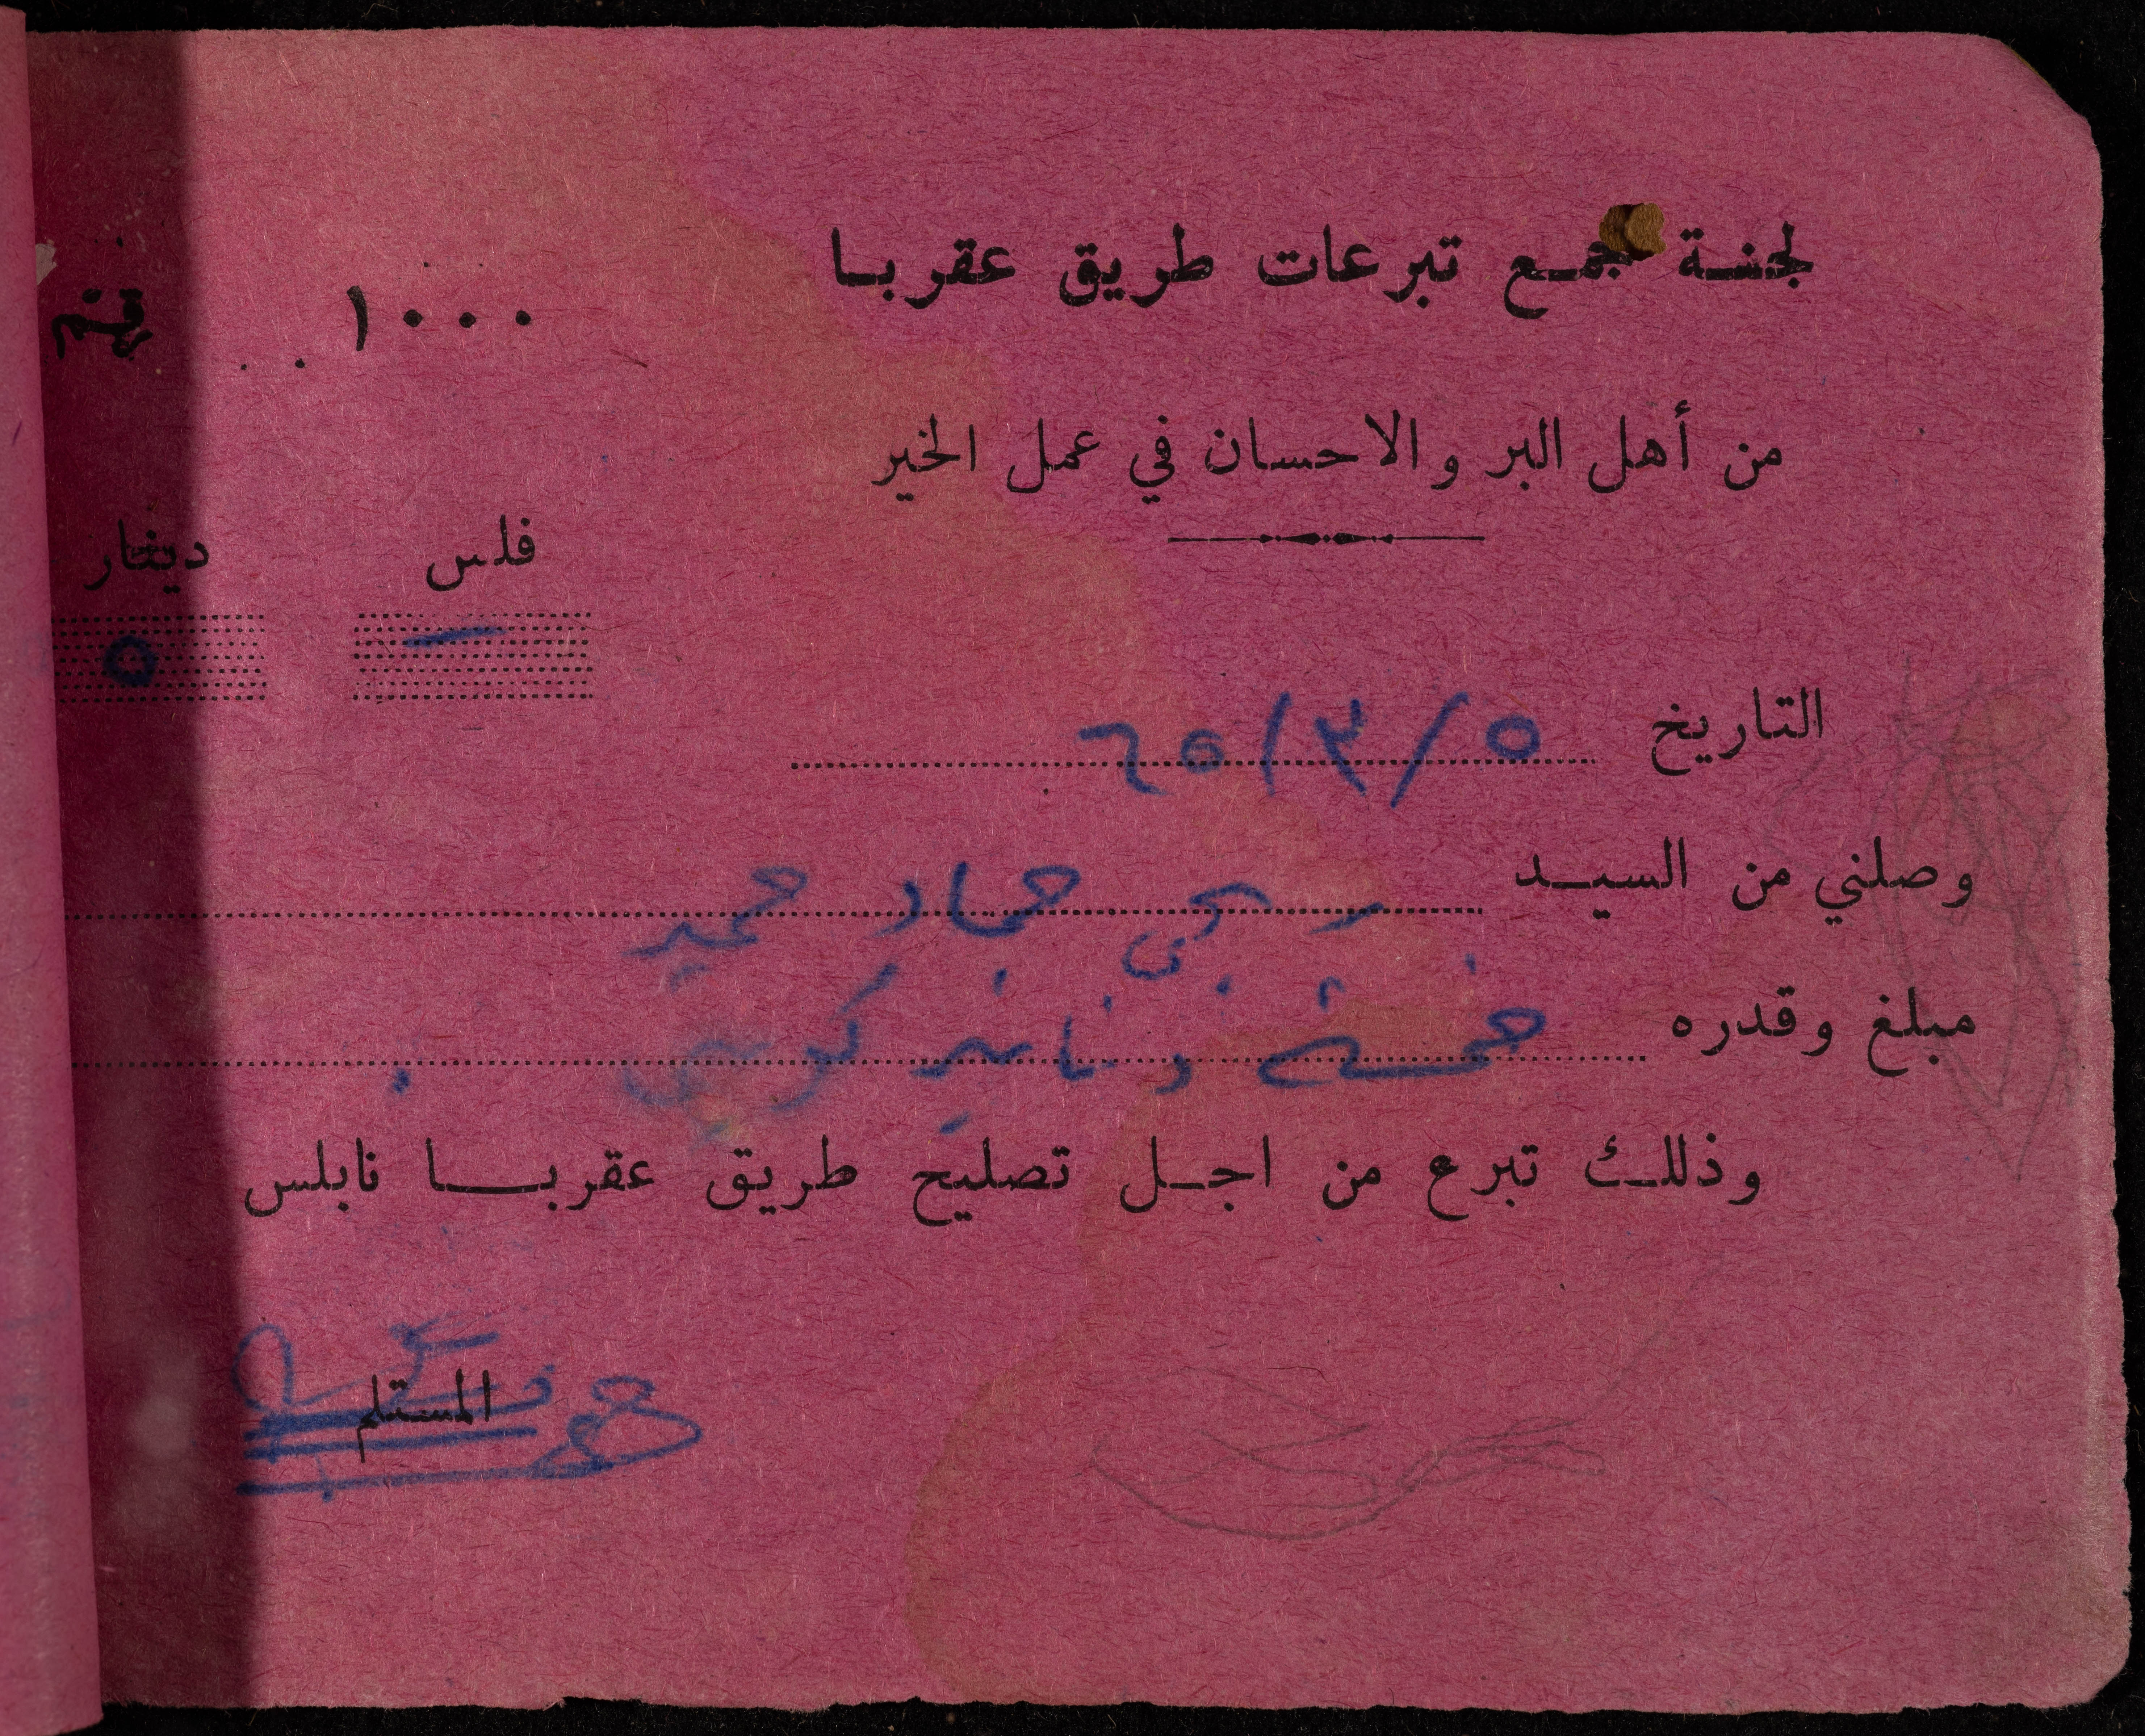 لجنة جمع تبرعات طريق عقربا
رقم ١٠٠٠
من أهل البر والاحسان في عمل الخير
فلس دينار
— ٥
التاريخ ٥/٣/٥٦
وصلني من السيد حماد حمير
مبلغ وقدره خمسة دنانير
وذلك تبرع من اجل تصليح طريق عقربا نابلس
المستلم